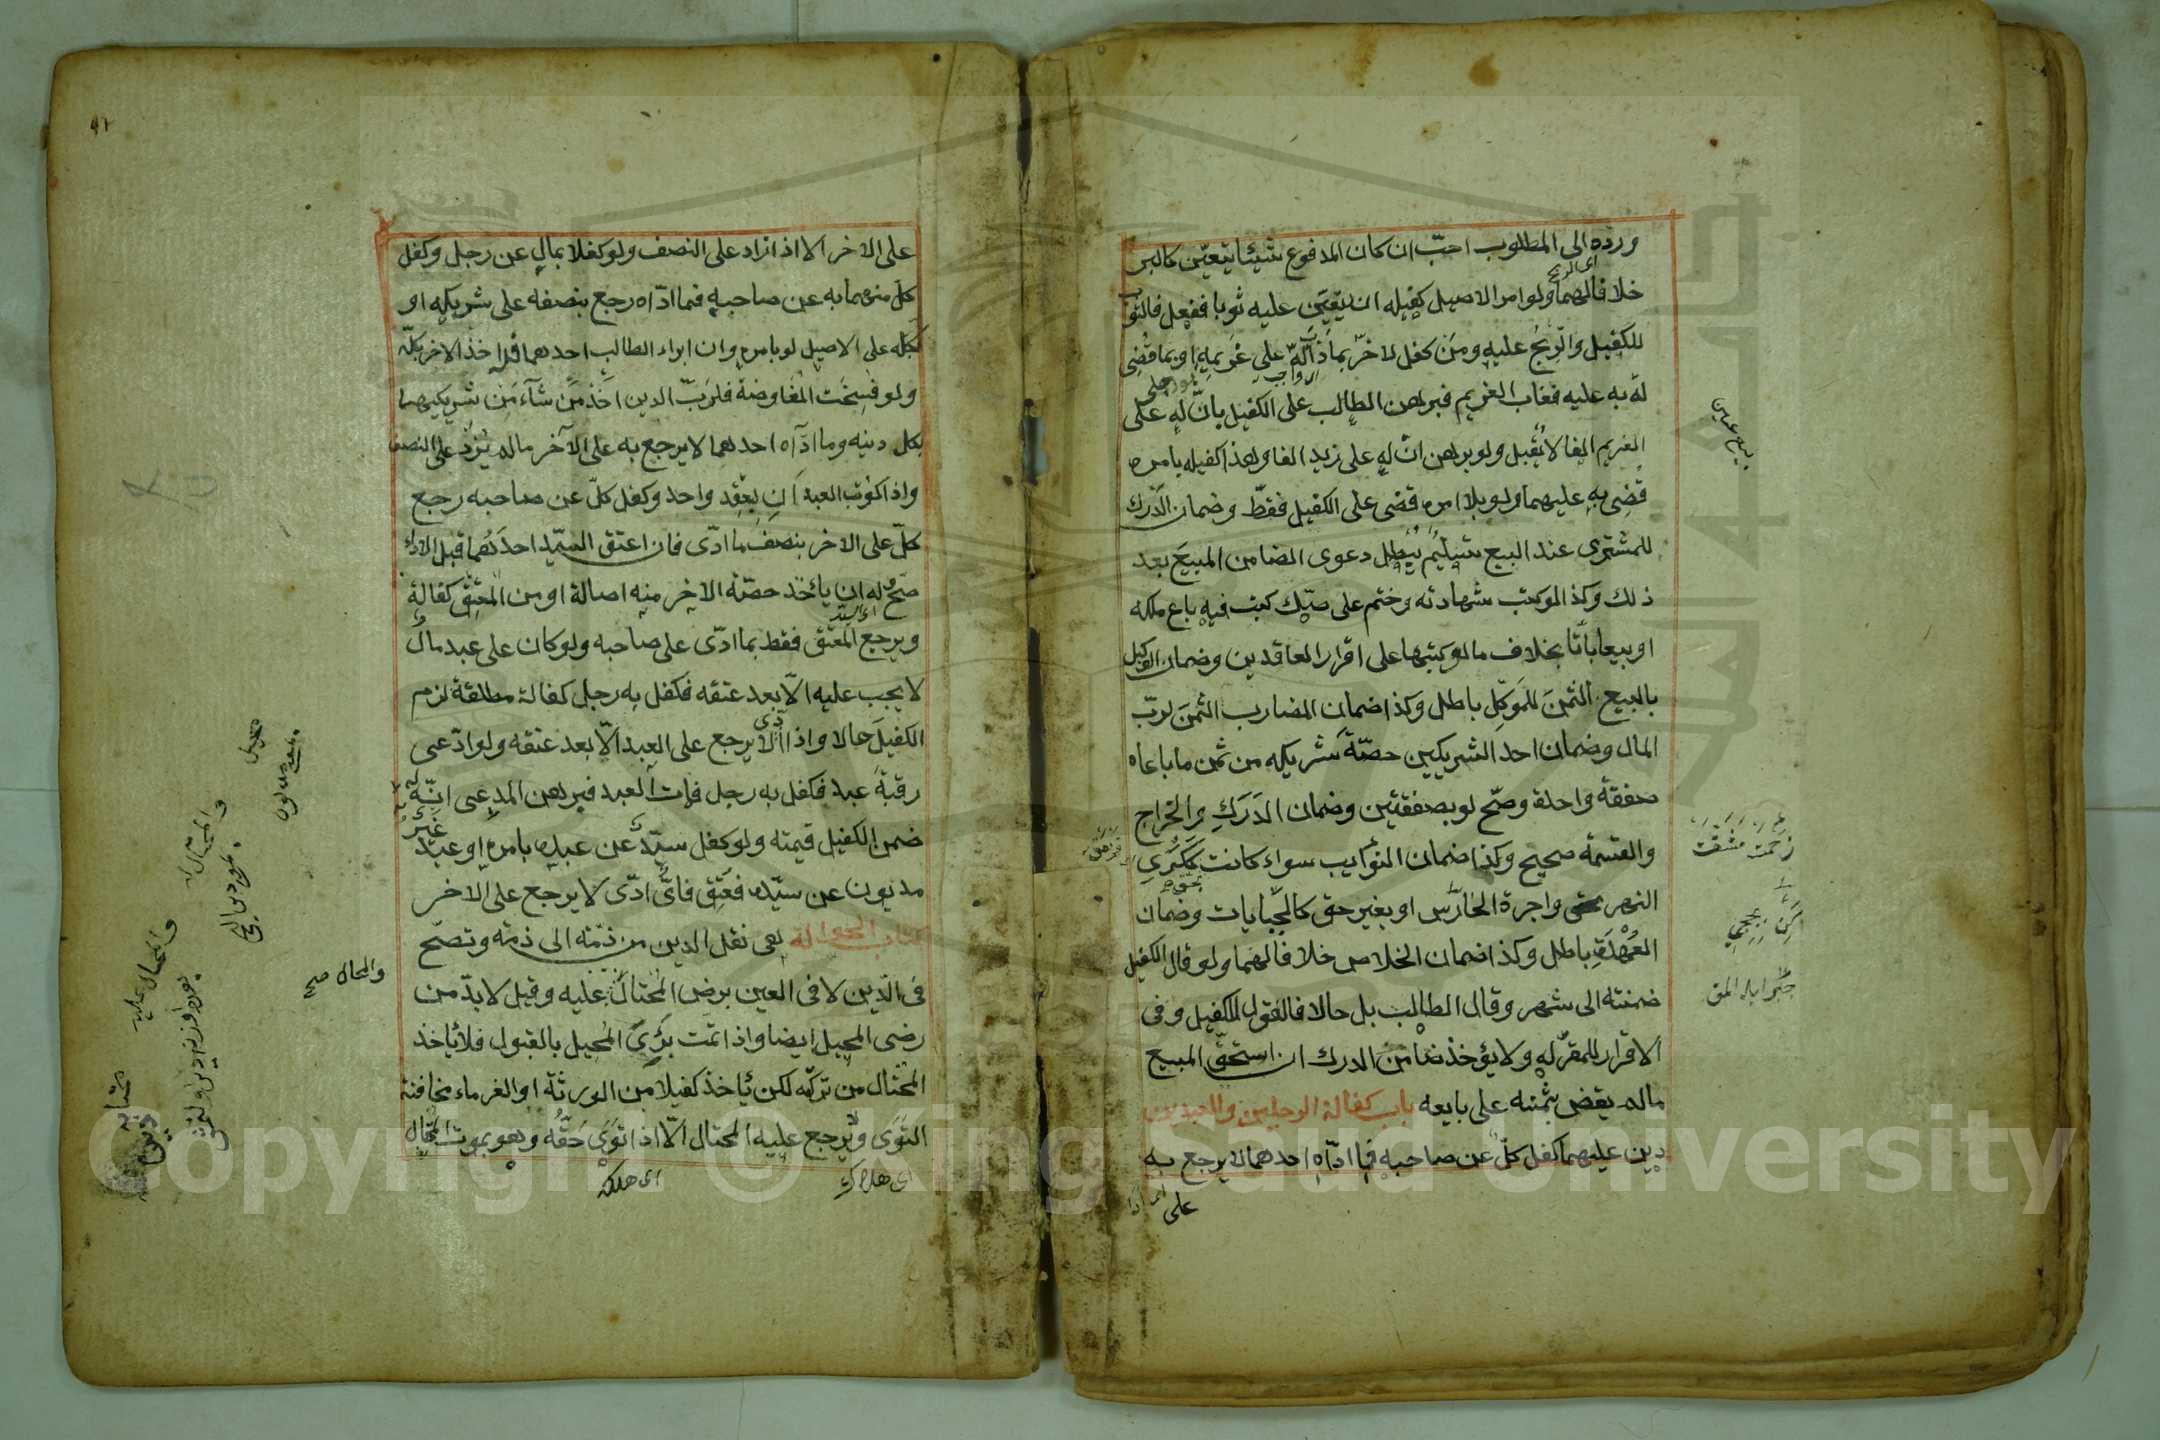 ورده الى المطلوب احبّ ان كان المدفوع شيئا يتعيّن كالبر
خلافا لهما ولو امر الاصيل كفيله ان يتعيّن عليه ثوبا ففعل فالثوب
للكفيل والرّبح عليه ومن كفل لاخر بما ذاب له على غريمه او بما قضى
له به عليه فغاب الغريم فبرهن الطالب على الكفيل بانّ له على
الغريم الفا لا يُقبل ولو برهن انّ له على زيد الفا وهذا كفيله بامره
قضى به عليهما ولو بلا امره قضى على الكفيل فقط وضمان الدّرك
للمشترى عند البيع تسليم يُبطل دعوى الضامن المبيع بعد
ذلك وكذا لو كتب شهادته وختم على صكّ كتب فيه باع ملكه
او بيعا باتّا بخلاف ما لو كتبها على اقرار العاقدين وضمان الوكيل
بالبيع الثمنَ للموكّل باطل وكذا ضمان المضارب الثمنَ لربّ
المال وضمان احد الشريكين حصّة شريكه من ثمن ما باعاه
صفقة واحدة وصحّ لو بصفقتين وضمان الدَرَكِ والخراج
والقسمة صحيح وكذا ضمان النوائب سواء كانت بحق ككرى
النهر واجرة الحارس او بغير حق كالجبايات وضمان
العُهْدَةِ باطل وكذا ضمان الخلاص خلافا لهما ولو قال الكفيل
ضمنته الى شهر وقال الطالب بل حالا فالقول للكفيل وفى
الاقرار للمقرّ له ولا يؤخذ ضامن الدرك ان استحقّ المبيع
ما لم يقض بثمنه على بايعه باب كفالة الرجلين والعبدين
دين عليهما كفل كلّ عن صاحبه فما ادّاه احدهما لا يرجع به
على
اى الربح
زحمت مشقت
على الاخر الا اذا زاد على النصف ولو كفلا بمال عن رجل وكفل
كلّ منهما به عن صاحبه فما ادّاه رجع بنصفه على شريكه او
بكلّه على الاصيل لو بامره وان ابراء الطالب احدهما فله اخذ الاخر بكلّه
ولو فسخت المفاوضة فلربّ الدين اخذ من شآء من شريكيهما
بكل دينه وما ادّاه احدهما لا يرجع به على الآخر ما لم يزد على النصف
واذا كوتب العبدان بعقد واحد وكفل كلّ عن صاحبه رجع
كلّ على الاخر بنصف ما ادّى فان اعتق السيّد احدهما قبل الاداء
صحّ وله ان يأخذ حصّة الاخر منه اصالة او من المعتق كفالة
ويرجع المعتق فقط بما ادّى على صاحبه ولو كان على عبد مال
لا يجب عليه الّا بعد عتقه فكفل به رجل كفالة مطلقة لزم
الكفيلَ حالا واذا ادّى لا يرجع على العبد الّا بعد عتقه ولو ادّعى
رقبةَ عبد فكفل به رجل فمات العبد فبرهن المدعى انّه له
ضمن الكفيل قيمته ولو كفل سيّد عن عبده بامره او عبد غير
مديون عن سيّده فعتق فاىٌّ ادّى لا يرجع على الاخر
كتاب الحوالة هى نقل الدين من ذمّة الى ذمة وتصحّ
فى الدّين لا فى العين برضى المحتال عليه وقيل لا بدّ من
رضى المحيل ايضا واذا تمّت برئ المحيل بالقبول فلا يأخذ
المحتال من تركته لكن يأخذ كفيلا من الورثة او الغرماء مخافة
التوى ولا يرجع عليه المحتال الّا اذا توى حقّه وهو بموت المحتال
اى هلاك
اى هلك
والمحال صح
والمحتال عليه
Copyright © King Saud University